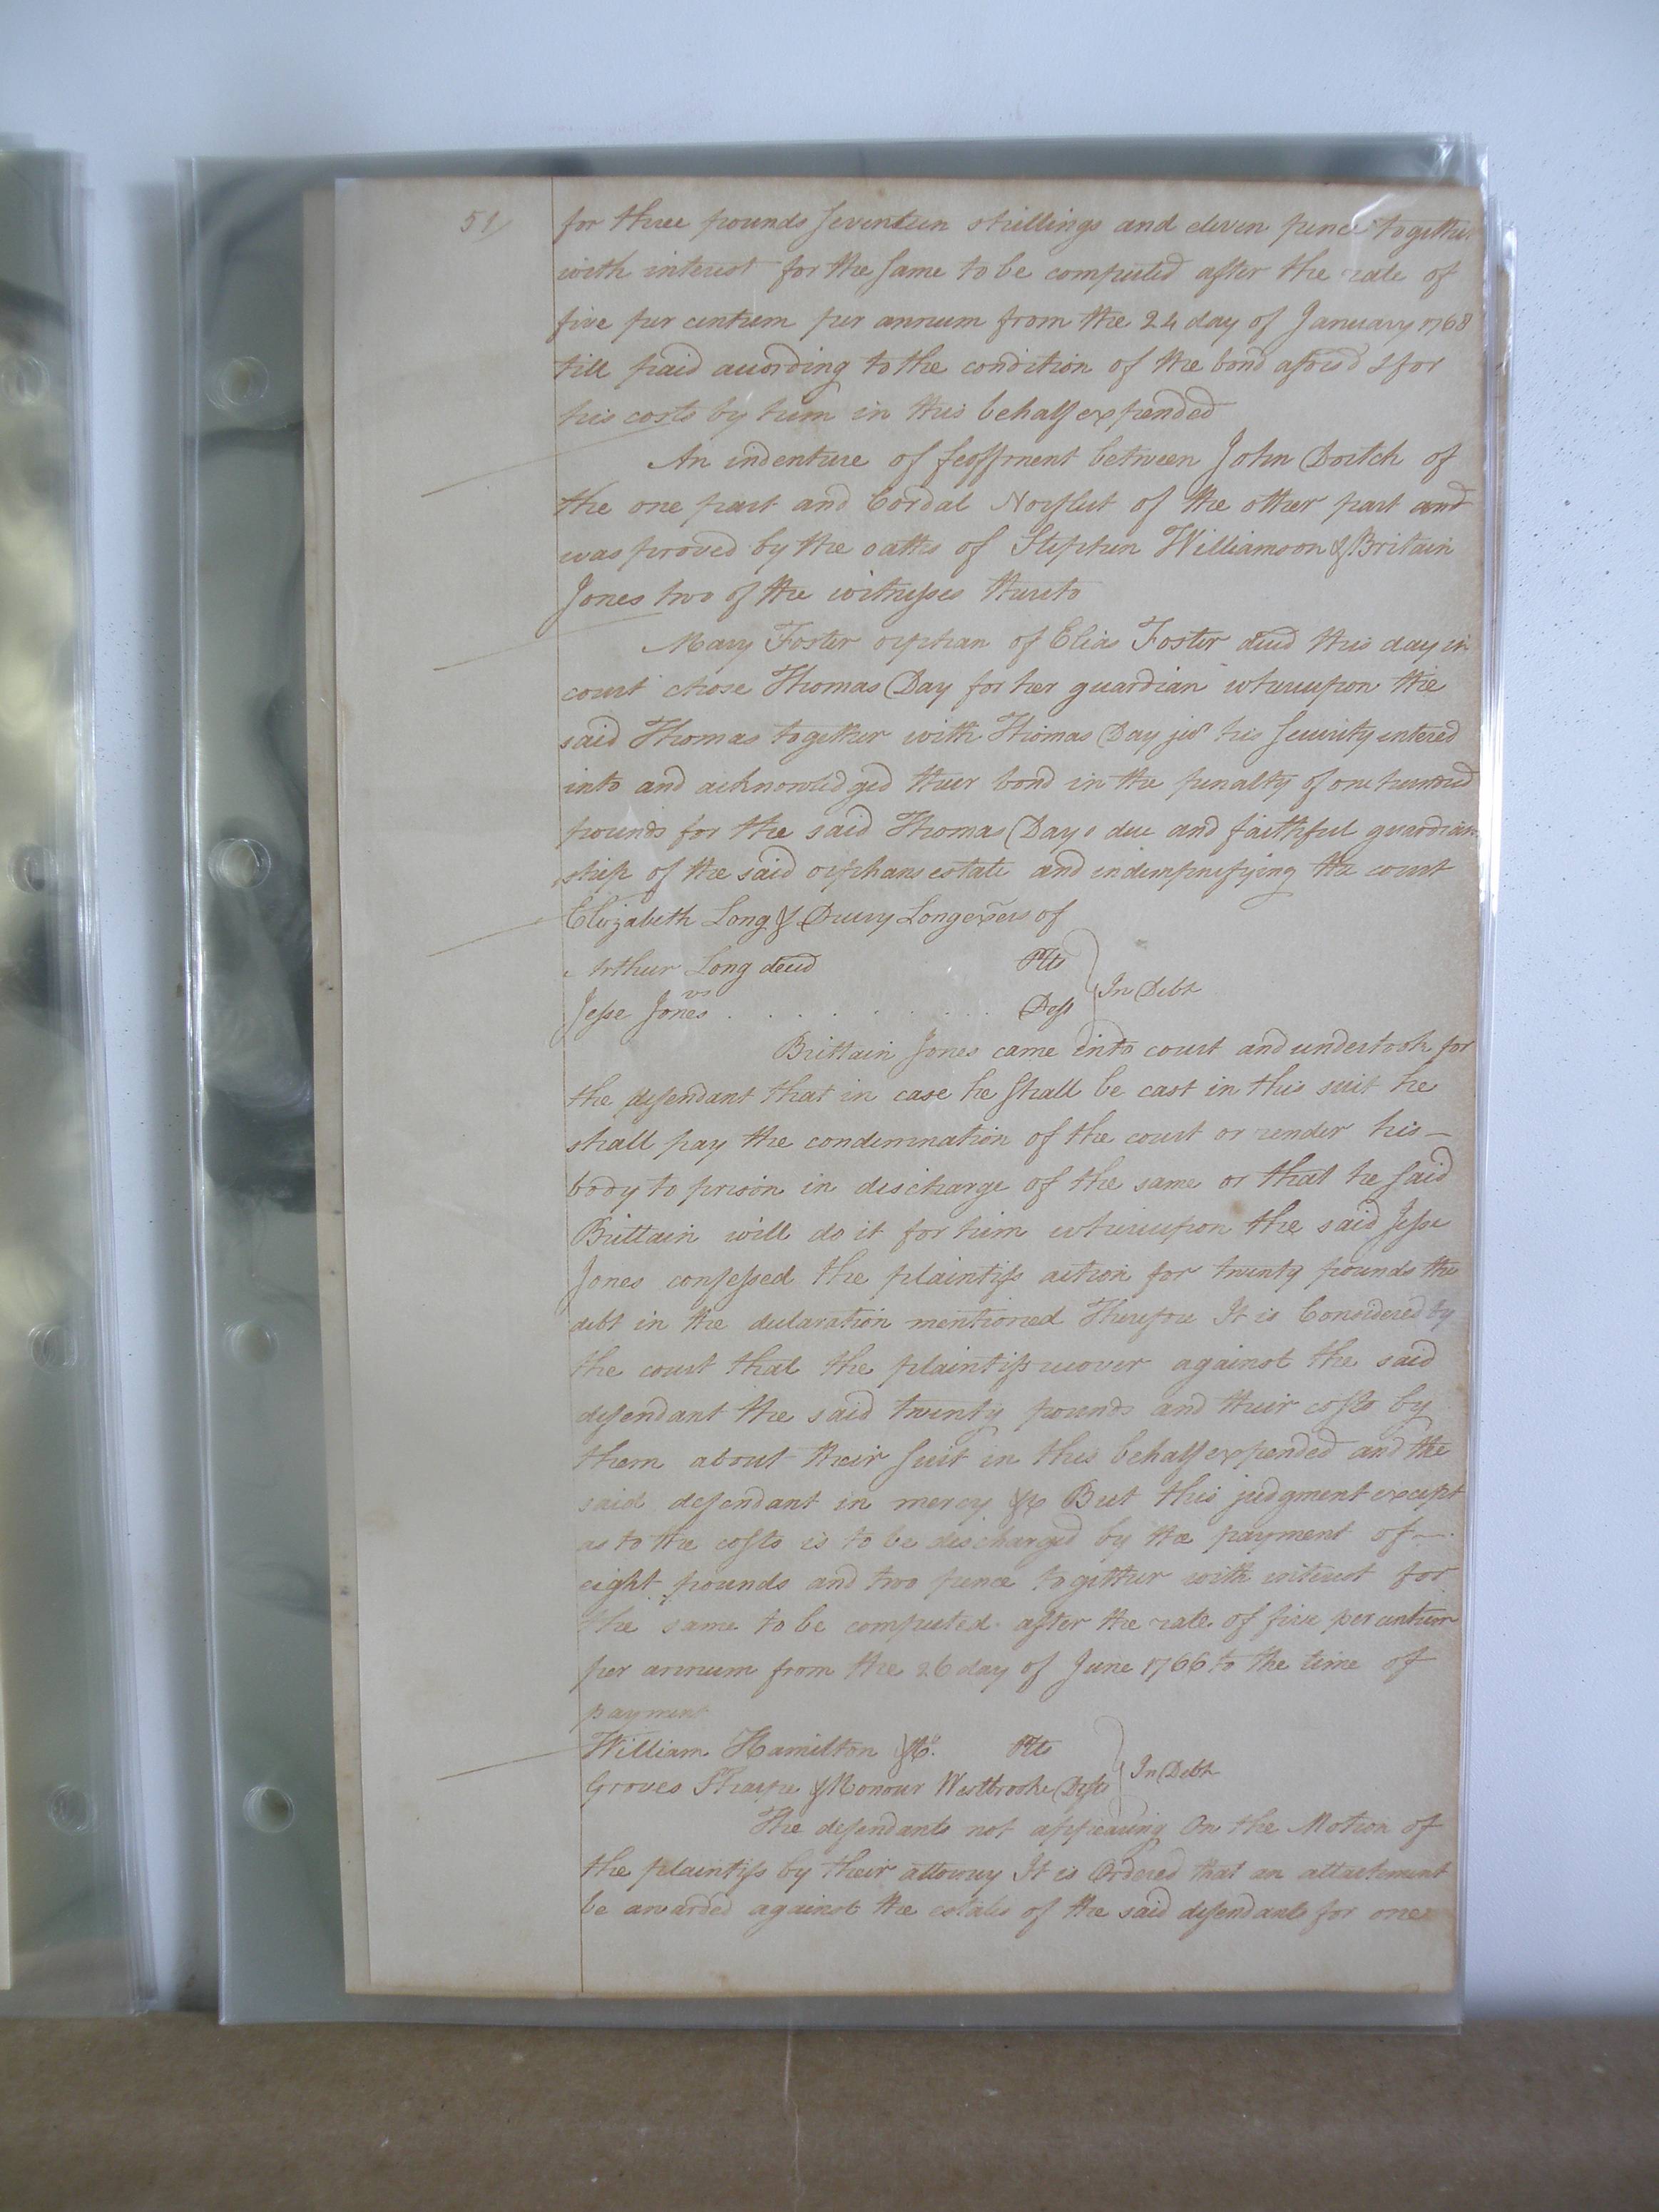 51/
for three pounds seventeen shillings and eleven pence together
with interest for the same to be computed after the rate of
five per centum per annum from the 24 day of January 1768
till paid according to the condition of the bond afores'd & for
his costs by him in this behalf expended
An indenture of feoffment between John Dortch of
the one part and Cordal Norfleet of the other part and
was proved by the oaths of Stephen Williamson & Britain
Jones two of the witnesses thereto
Mary Foster orphan of Elias Foster dec'd this day in
court chose Thomas Day for her guardian whereupon the
said Thomas together with Thomas Day jur his security entered
into and acknowledged their bond in the penalty of one hundred
pounds for the said Thomas Days due and faithful guardian
ship of the said orphans estate and indempnifying the court
Elizabeth Long & Drury Long exers of
Arthur Long decd Plts
vs
Jesse Jones . . . . . . . . . Deft
In Debt
Brittain Jones came into court and undertook for
the defendant that in case he shall be cast in this suit he
shall pay the condemnation of the court or render his —
body to prison in discharge of the same or that he said
Brittain will do it for him whereupon the said Jesse
Jones confessed the plaintifs action for twenty pounds the
debt in the declaration mentioned Therefore It is Considered by
the court that the plaintifs recover against the said
defendant the said twenty pounds and their costs by
them about their suit in this behalf expended and the
said defendant in mercy &c But this judgment except
as to the costs is to be discharged by the payment of —
eight pounds and two pence together with interest for
the same to be computed after the rate of five per centum
per annum from the 26 day of June 1766 to the time of
payment
William Hamilton &Co. Plts
Groves Sharpe & Honour Westbrooke Defts
In Debt
The defendants not appearing On the Motion of
the plaintifs by their attorney It is Ordered that an attachment
be awarded against the estates of the said defendants for one